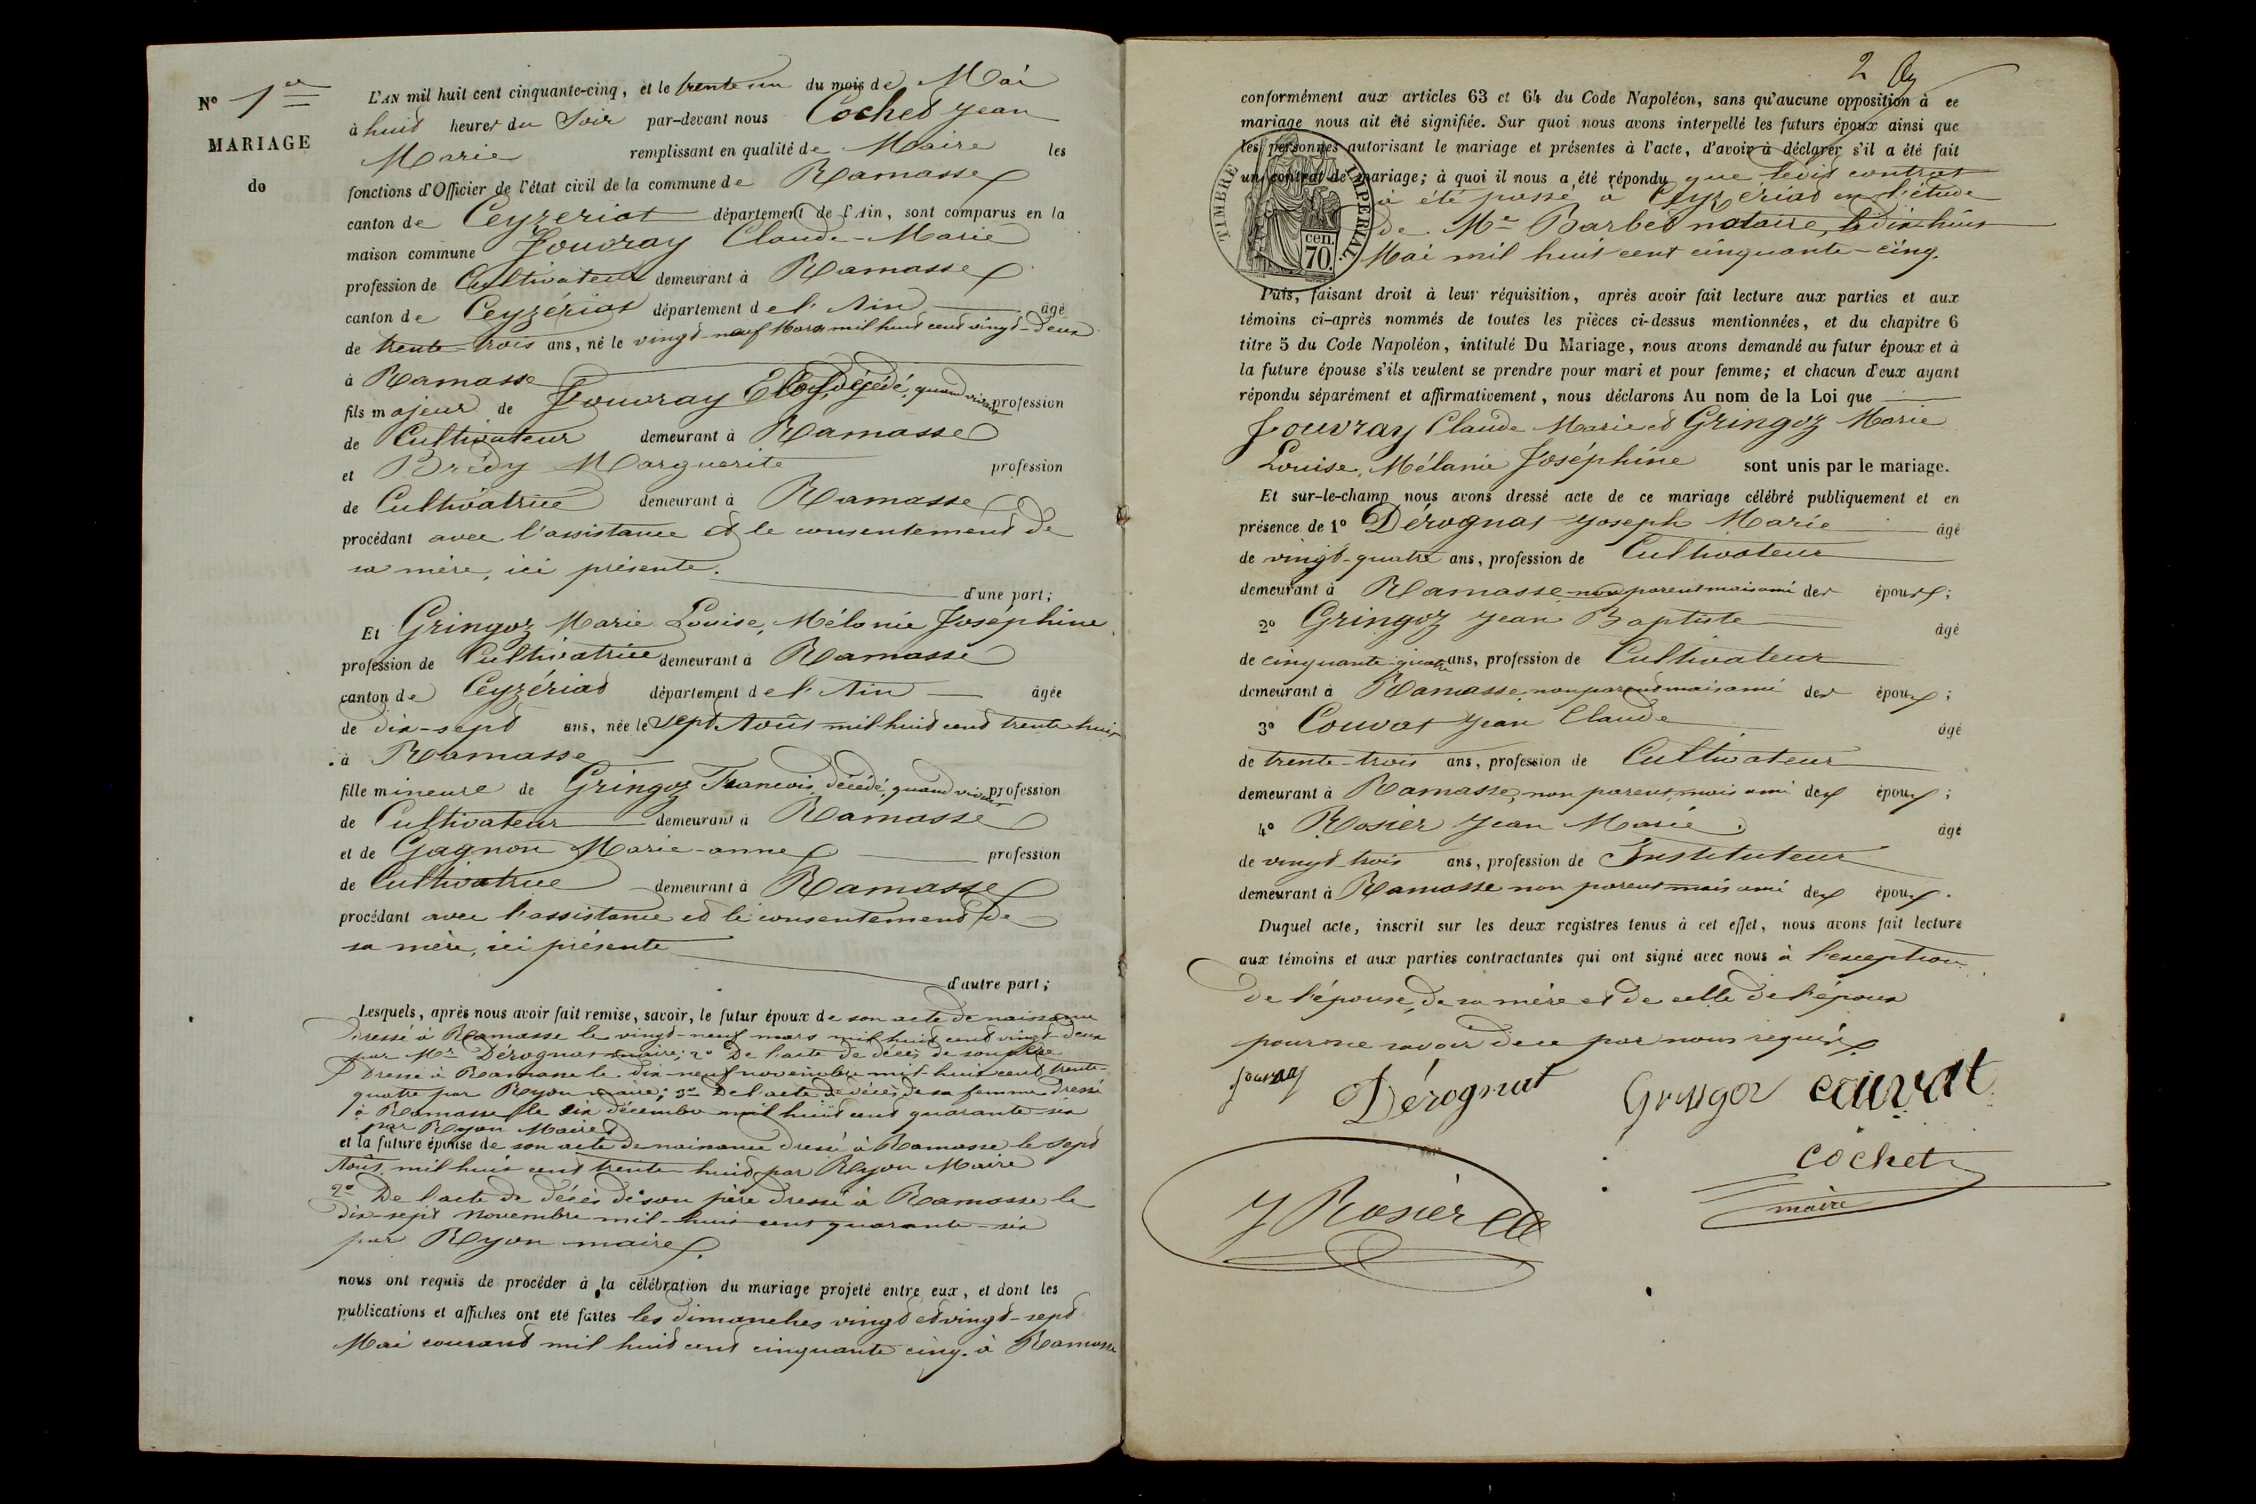 N° 1er
MARIAGE
de
L'AN mil huit cent cinquante-cinq, et le trente un du mois de Mai
à huit heures du Soir par-devant nous Cochet Jean
Marie remplissant en qualité de Maire les
fonctions d'Officier de l'état civil de la commune de Ramasse
canton de Ceyzeriat département de l'Ain, sont comparus en la
maison commune Jouvray Claude-Marie
profession de Cultivateur demeurant à Ramasse
canton de Ceyzériat département de l'Ain âgé
de trente-trois ans, né le vingt-neuf Mars mil huit cent vingt-deux
à Ramasse
fils majeur de Jouvray Eloy, décédé, quand vivait profession
de Cultivateur demeurant à Ramasse
et Brédy Marguerite profession
de Cultivatrice demeurant à Ramasse
procédant avec l'assistance et le consentement de
sa mère, ici présente.
d'une part;
Et Gringoz Marie Louise, Mélanie Joséphine
profession de Cultivatrice demeurant à Ramasse
canton de Ceyzériat département de l'Ain âgée
de dix-sept ans, née le sept Août mil huit cent trente huit
à Ramasse
fille mineure de Gringoz Francois, décédé, quand vivait profession
de Cultivateur demeurant à Ramasse
et de Gagnon Marie-anne profession
de Cultivatrice demeurant à Ramasse
procédant avec l'assistance et le consentement de
sa mère, ici présente
d'autre part;
Lesquels, après nous avoir fait remise, savoir, le futur époux de son acte de naissance
dressé à Ramasse le vingt-neuf mars mil huit cent vingt-deux
par Mr Dérognat maire; 2° De l'acte de décès de son père
Dressé à Ramasse le dix-neuf novembre mil-huit cent trente-
quatre par Ryon maire; 3° De l'acte de décès de sa femme dressé
à Ramasse le six décembre mil huit cent quarante-six
par Ryon Maire
et la future épouse de son acte de naissance dressé à Ramasse le sept
Août mil huit cent trente huit par Ryon Maire
2° De l'acte de décès de son père dressé à Ramasse le
dix-sept Novembre mil-huit cent quarante-six
par Ryon maire.
nous ont requis de procéder à la célébration du mariage projeté entre eux, et dont les
publications et affiches ont été faites les dimanches vingt et vingt-sept
Mai courant mil huit cent cinquante cinq. à Ramasse
2
conformément aux articles 63 et 64 du Code Napoléon, sans qu'aucune opposition à ce
mariage nous ait été signifiée. Sur quoi nous avons interpellé les futurs époux ainsi que
les personnes autorisant le mariage et présentes à l'acte, d'avoir à déclarer s'il a été fait
un contrat de mariage; à quoi il nous a été répondu que ledit contrat
a été passé à Ceyzériat en l'étude
de Me Barbet notaire, le dix-huit
Mai mil huit cent cinquante-cinq.
TIMBRE IMPÉRIAL
cen.
70.
Puis, faisant droit à leur réquisition, après avoir fait lecture aux parties et aux
témoins ci-après nommés de toutes les pièces ci-dessus mentionnées, et du chapitre 6
titre 5 du Code Napoléon, intitulé Du Mariage, nous avons demandé au futur époux et à
la future épouse s'ils veulent se prendre pour mari et pour femme; et chacun d'eux ayant
répondu séparément et affirmativement, nous déclarons Au nom de la Loi que
Jouvray Claude Marie et Gringoz Marie
Louise, Mélanie Joséphine sont unis par le mariage.
Et sur-le-champ nous avons dressé acte de ce mariage célébré publiquement et en
présence de 1° Dérognat Joseph Marie âgé
de vingt-quatre ans, profession de Cultivateur
demeurant à Ramasse non parent mais ami des époux;
2° Gringoz Jean Baptiste âgé
de cinquante-quatre ans, profession de Cultivateur
demeurant à Ramasse, non parent mais ami des époux;
3° Couvat Jean Claude âgé
de trente-trois ans, profession de Cultivateur
demeurant à Ramasse, non parent, mais ami des époux;
4° Rosier Jean Marie âgé
de vingt trois ans, profession de Instituteur
demeurant à Ramasse non parent mais ami des époux.
Duquel acte, inscrit sur les deux registres tenus à cet effet, nous avons fait lecture
aux témoins et aux parties contractantes qui ont signé avec nous à l'exception
de l'épouse, de sa mère et de celle de l'époux
pour ne savoir de ce par nous requis.
Jouvray Dérognat Gringoz couvat
cochet
maire
J Rosier